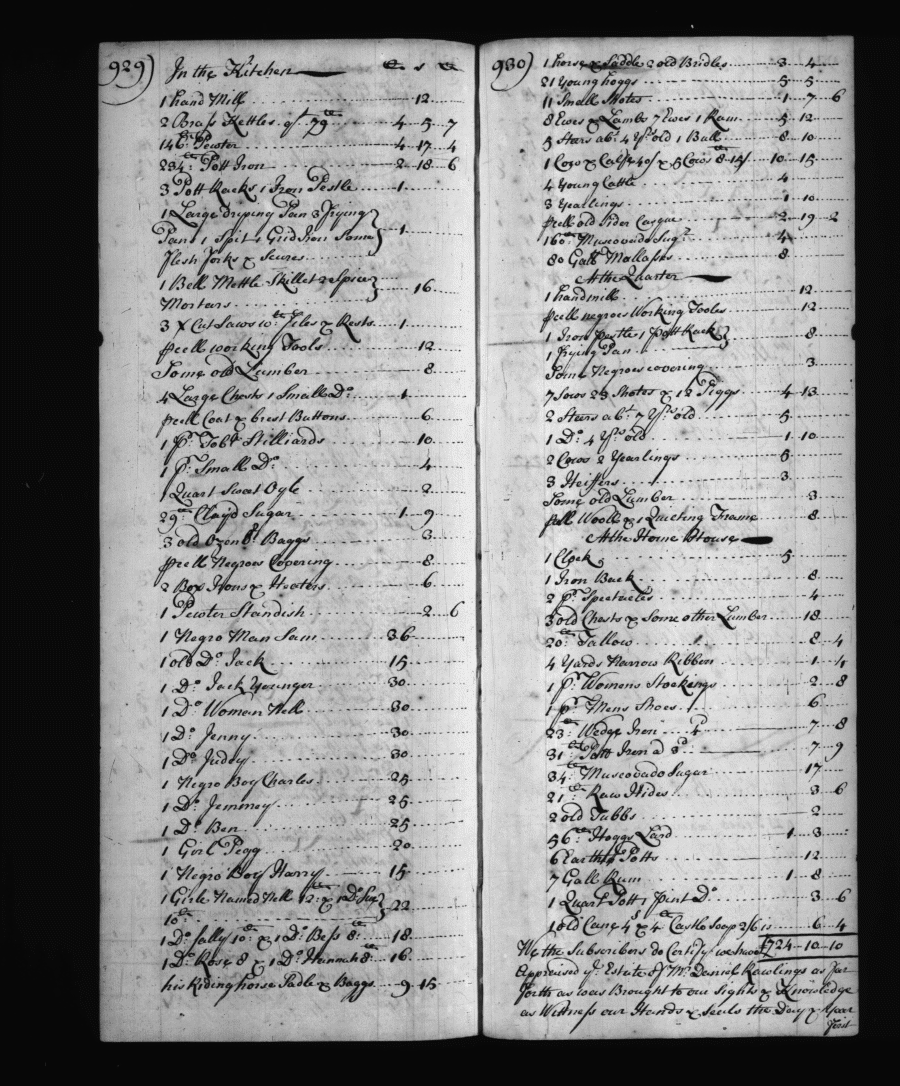 929)
In the Kitchen £ s d
1 hand Mill 12
2 Brass Kettles qt 79lb 4 5 7
146lb Pewter 4 17 4
234lb Pott Iron 2 18 6
3 Pott Racks 1 Iron Pestle 1
1 Large driping Pan 3 Frying
Pans 1 Spit 1 Gridiron Some 1
flesh forks &
1 Bell Mettle Skillet 2 Spice 16
Mortars
3 X Cut Saws wth files & Rests 1
pcell working Tools 12
Some old Lumber 8
4 Large Chests 1 Small Do 1
pcell Coat & brest Buttons 6
1 pr Tobo Stilliards 10
1 pr Small Do 4
1 Quart Sweet Oyle 2
29lb Clayd Sugar 1 9
3 old Ozenbs Baggs 3
pcell Negroes Covering 8
2 Box Irons & Heaters 6
1 Pewter Standish 2 6
1 Negro Man Sam 36
1 old Do Jack 15
1 Do Jack Younger 30
1 Do Woman Nell 30
1 Do Jenny 30
1 Do Juddy 30
1 Negro Boy Charles 25
1 Do Jemmey 25
1 Do Ben 25
1 Girl Pegg 20
1 Negro Boy Harry 15
1 Girle Named Nell 12 & 1 Do Sue 22
10
1 Do Sally 10 & 1 Do Bess 8 18
1 Do Rose 8 & 1 Do Hannah 8 16
his Riding horse Sadle & Baggs 9 15
930)
1 horse & Saddle 2 old Bridles 3 4
21 Young hoggs 5 5
11 Small Shotes 1 7 6
8 Ewes & Lambs 7 Ewes 1 Ram 5 12
5 Steers abt 4 Yrs old 1 Bull 8 10
1 Cow & Calf 40/ & 5 Cows 8 15/ 10 15
4 Young Cattle 4
3 Yearlings 1 10
pcell old Sider Casque 2 19 2
160lb Muscovado Sugr 4
80 Galls Mallasses 8
At the Quarter
1 hand mill 12
pcell negroes Working Tooles 12
1 Iron pestle 1 pott Rack 8
1 frying Pan
Some Negroes covering 3
7 Sows 23 Shotes & 12 Piggs 4 13
2 Steers abt 7 Yrs old 5
1 Do 4 Yrs old 1 10
2 Cows 2 Yearlings 5
3 Heiffers 3
Some old Lumber 3
pcll Wooll & 1 Quilting Frame 8
At the Home House
1 Clock 5
1 Iron Back 8
2 pr Spectacles 4
3 old Chests & Some other Lumber 18
20lb Tallow 8 4
4 Yards Narrow Ribben 1 4
1 pr Womens Stockings 2 8
1 pr Mens Shoes 6
23lb Wedge Iron 4d 7 8
31lb Pott Iron a 3d 7 9
34lb Muscovado Sugar 17
21lb Raw Hides 3 6
2 old Tubbs 2
56lb Hoggs Lard 1 3
6 Earthn Potts 12
7 Gall Rum 1 8
1 Quart Pott 1 Pint Do 3 6
1 old Cane 4s & 4lb Castle Soap 2/6 is 6 4
We the Subscribers do Certify we have 724 10 10
Appraised ye Estate of Mr Daniel Rawlings as far
forth as was Brought to our Sights & Knowledge
as Witness our Hands & Seals the Day & Year
first